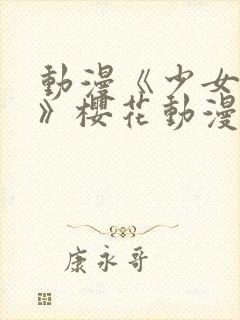 動漫《少女
》櫻花動漫
康永哥